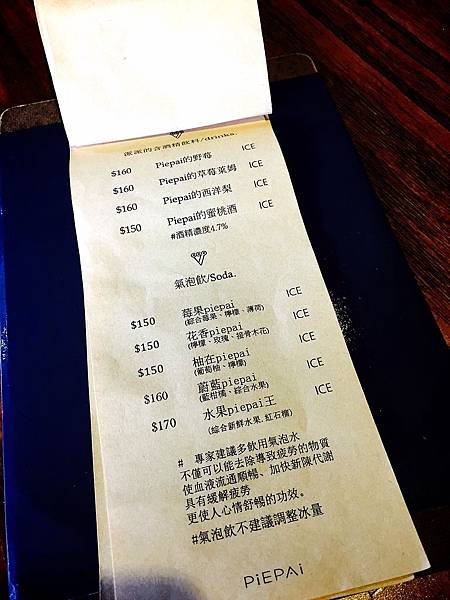 派派的含酒精飲料/drinks.
$160 Piepai的野莓 ICE
$160 Piepai的草莓萊姆 ICE
$160 Piepai的西洋梨 ICE
$150 Piepai的蜜桃酒 ICE
#酒精濃度4.7%
氣泡飲/Soda.
$150 莓果piepai ICE
(綜合莓果、檸檬、薄荷)
$150 花香piepai ICE
(檸檬、玫瑰、接骨木花)
$150 柚在piepai ICE
(葡萄柚、檸檬)
$160 蔚藍piepai ICE
(藍柑橘、綜合水果)
$170 水果piepai王 ICE
(綜合新鮮水果.紅石榴)
# 專家建議多飲用氣泡水
不僅可以能去除導致疲勞的物質
使血液流通順暢、加快新陳代謝
具有緩解疲勞
更使人心情舒暢的功效。
#氣泡飲不建議調整冰量
PiEPAi